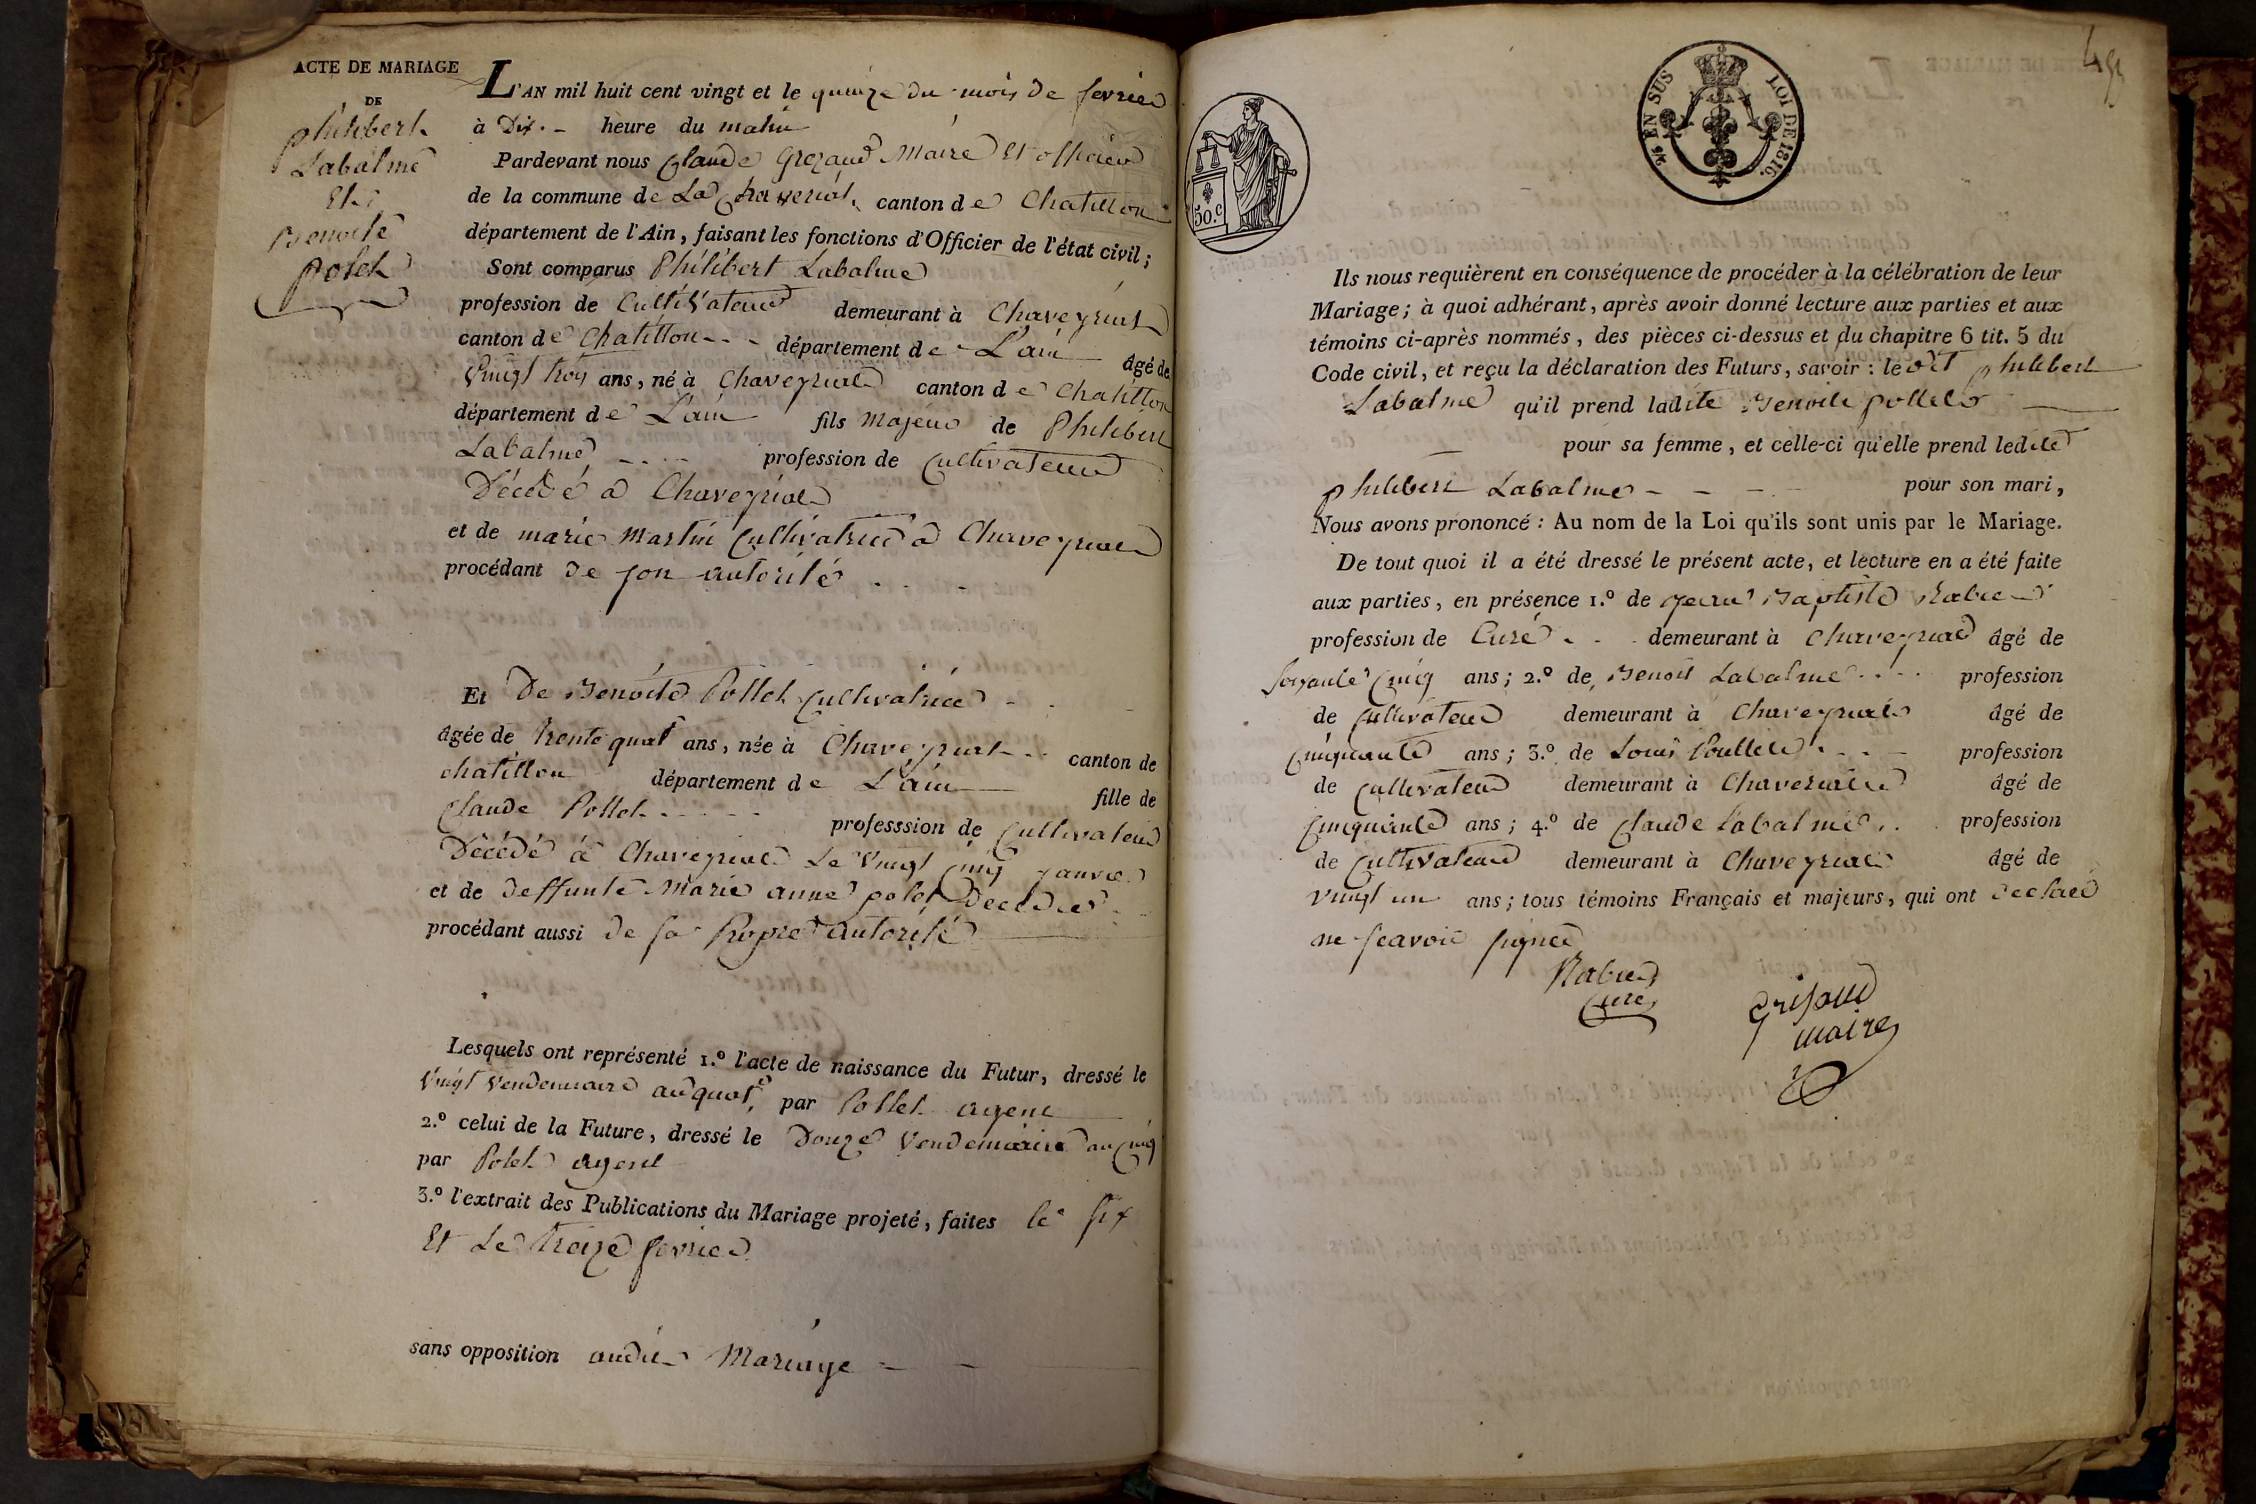 ACTE DE MARIAGE
DE
philibert
Labalme
Et
Benoite
Polet
L'AN mil huit cent vingt et le quinze du mois de fevrier
à Dix heure du matin
Pardevant nous Claude Grozaud Maire Et officier
de la commune de La Chaveriat canton de Chatillon
département de l'Ain, faisant les fonctions d'Officier de l'état civil;
Sont comparus Philibert Labalme
profession de Cultivateur demeurant à Chaveyriat
canton de Chatillon département de L'ain âgé de
Vingt troy ans, né à Chaveyriat canton de Chatillon
département de L'ain fils majeur de Philibert
Labalme profession de Cultivateur
Décédé a Chaveyriat
et de marie Martin Cultivatrice a Chaveyriat
procédant de son autorité
Et De Benoite Pollet Cultivatrice
âgée de trente quat ans, née à Chaveyriat canton de
chatillon département de L'ain fille de
Claude Pollet professsion de Cultivateur
Décédé a Chaveyriat Le Vingt Cinq janvier
et de deffunte Marie anne polet Decedee
procédant aussi de sa Propre autorité
Lesquels ont représenté 1.º l'acte de naissance du Futur, dressé le
Vingt Vendemiaire an quat, par Pollet agent
2.º celui de la Future, dressé le Douze Vendemiaire an Cinq
par Polet agent
3.º l'extrait des Publications du Mariage projeté, faites le six
Et Le treize fevrier
sans opposition audit Mariage
50.C
EN SUS
LOI DE 1816.
Ils nous requièrent en conséquence de procéder à la célébration de leur
Mariage; à quoi adhérant, après avoir donné lecture aux parties et aux
témoins ci-après nommés, des pièces ci-dessus et du chapitre 6 tit. 5 du
Code civil, et reçu la déclaration des Futurs, savoir: le dit philibert
Labalme qu'il prend ladite Benoite pollet
pour sa femme, et celle-ci qu'elle prend ledit
philibert Labalme pour son mari,
Nous avons prononcé: Au nom de la Loi qu'ils sont unis par le Mariage.
De tout quoi il a été dressé le présent acte, et lecture en a été faite
aux parties, en présence 1.º de jean Baptiste Rabuel
profession de Curé demeurant à Chaveyriat âgé de
soixante Cinq ans; 2.º de Benoit Labalme profession
de Cultivateur demeurant à Chaveyriat âgé de
Cinquante ans; 3.º de Louis Poullet profession
de Cultivateur demeurant à Chaveriat âgé de
Cinquante ans; 4.º de Claude Labalme profession
de Cultivateur demeurant à Chaveyriat âgé de
vingt un ans; tous témoins Français et majeurs, qui ont declaré
ne scavoir signer
Curé
maire